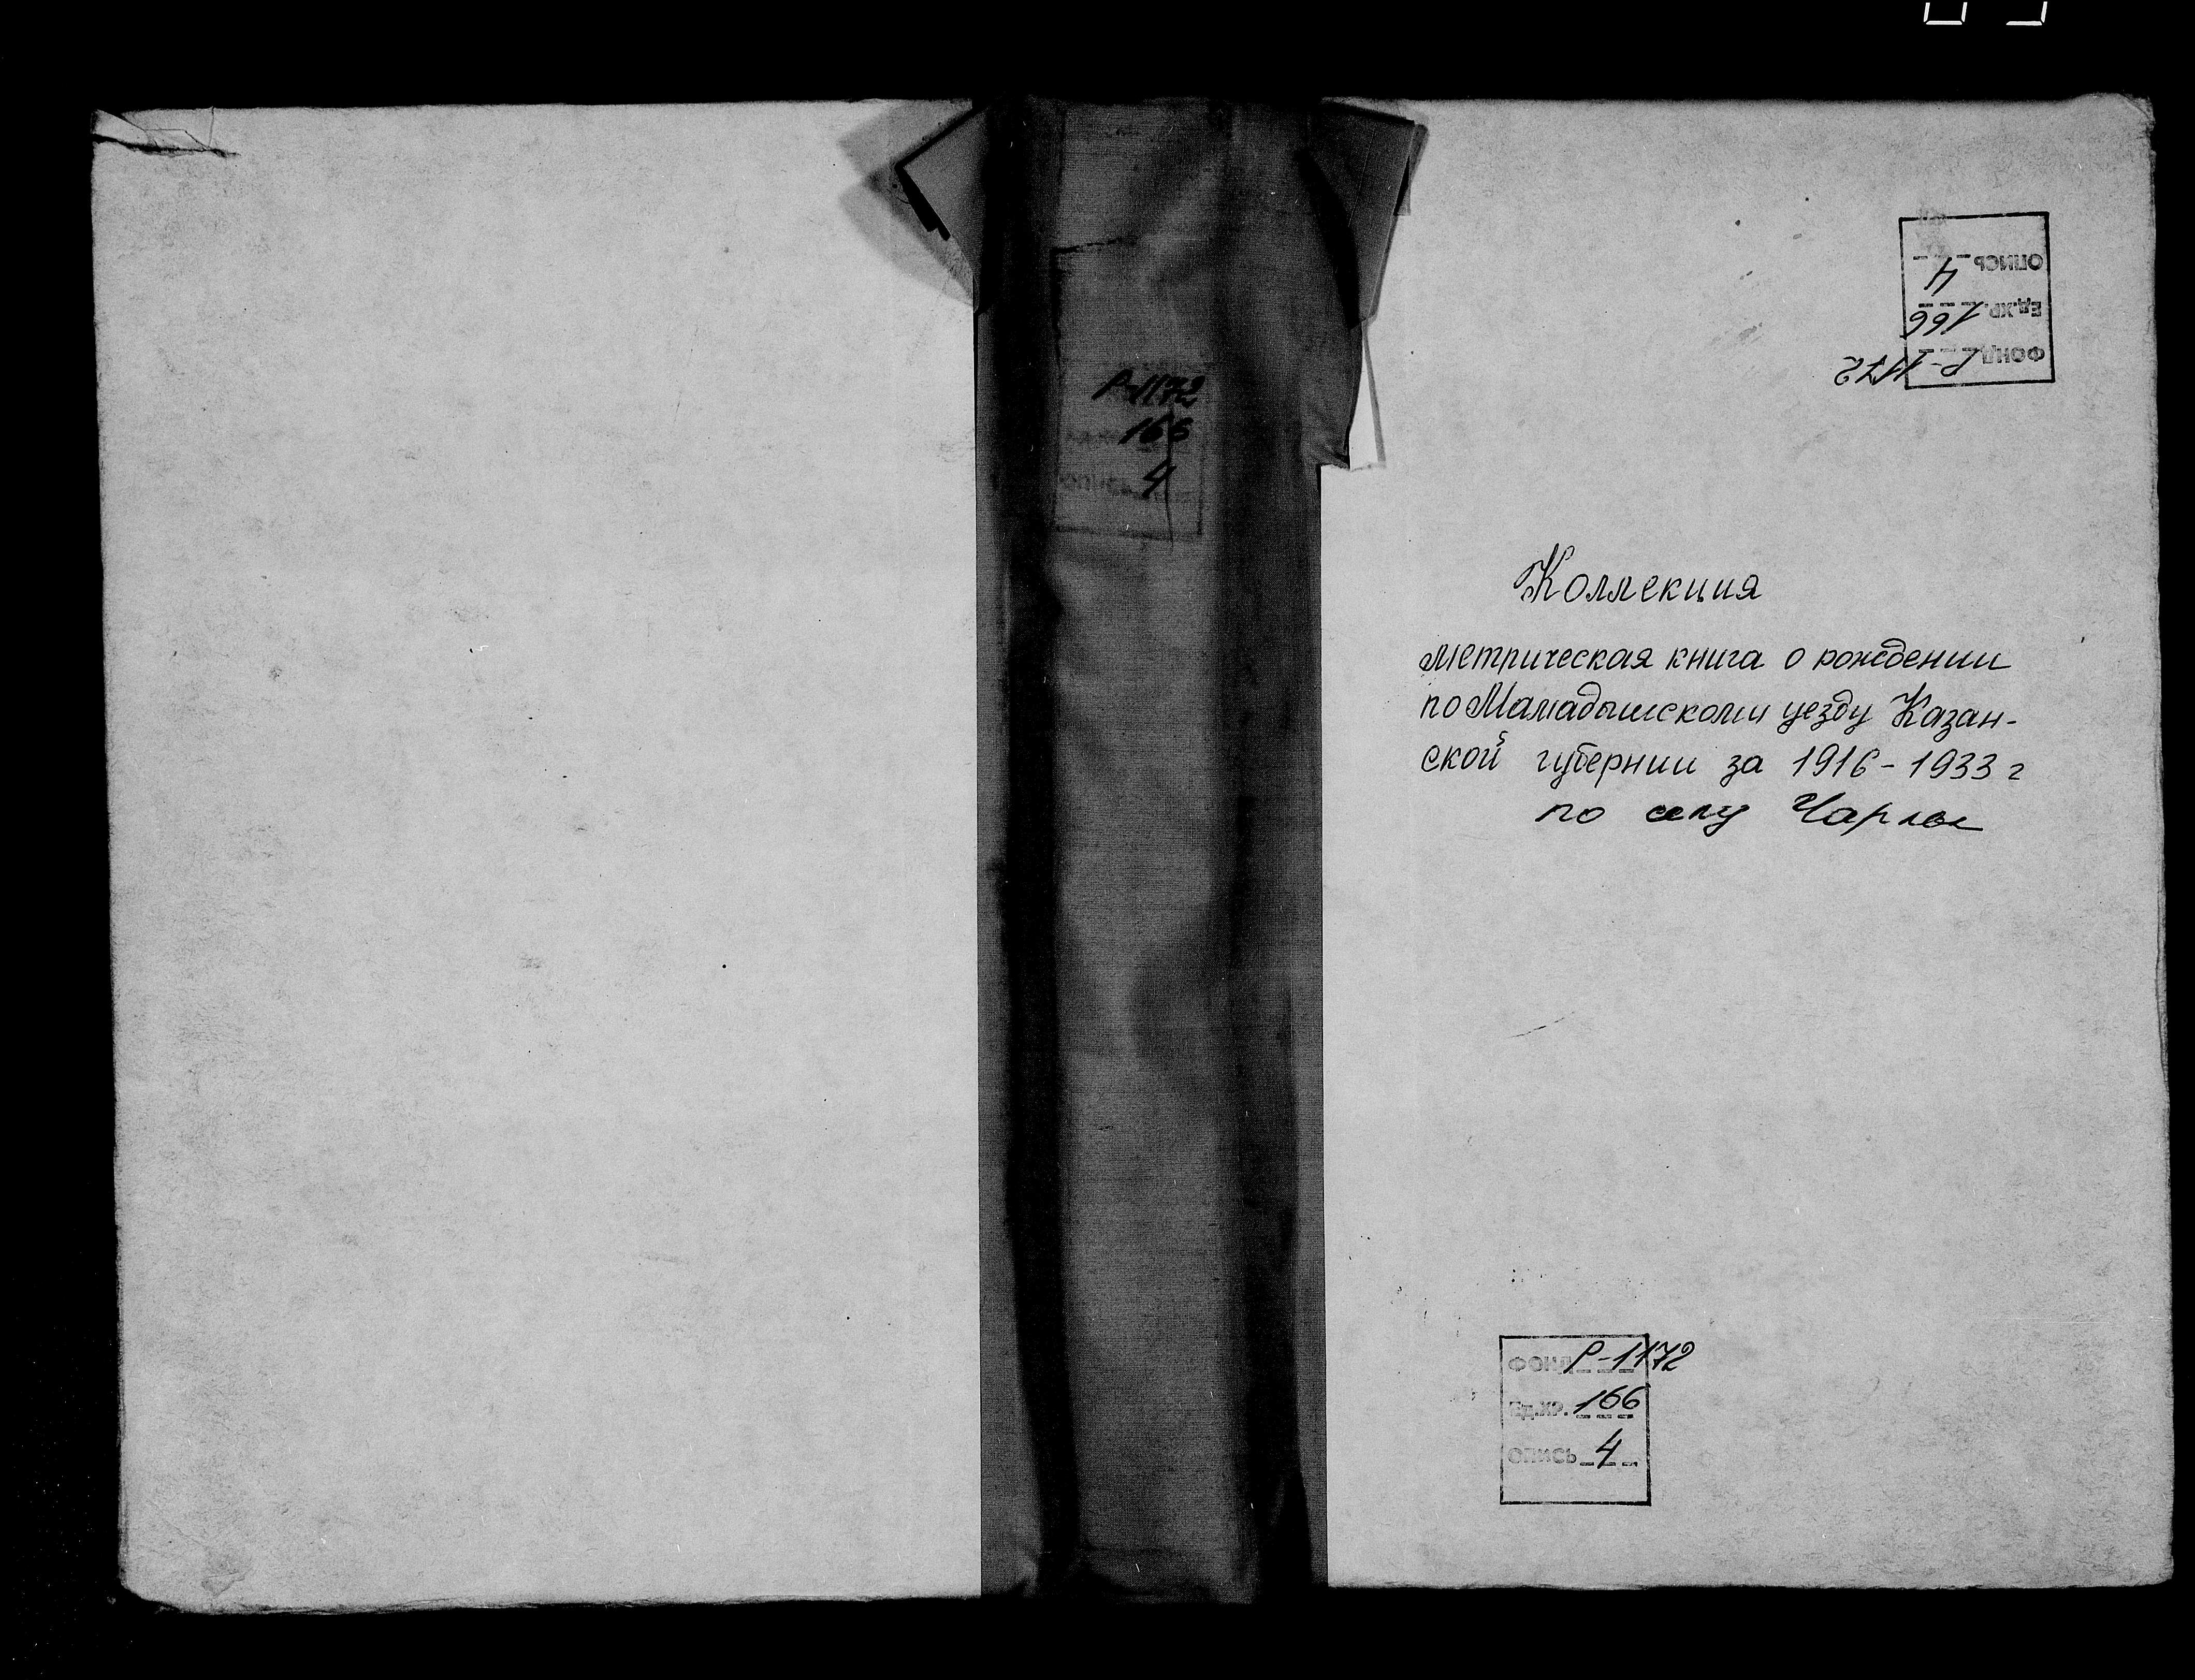 Р-1172
166
4
ФОНД Р-1172
Ед.ХР. 166
ОПИСЬ 4
Коллекция
метрическая книга о рождении
по Мамадышскому уезду Казан-
ской губернии за 1916-1933 г
по селу Чарлы
ФОНД Р-1172
Ед.ХР. 166
ОПИСЬ 4